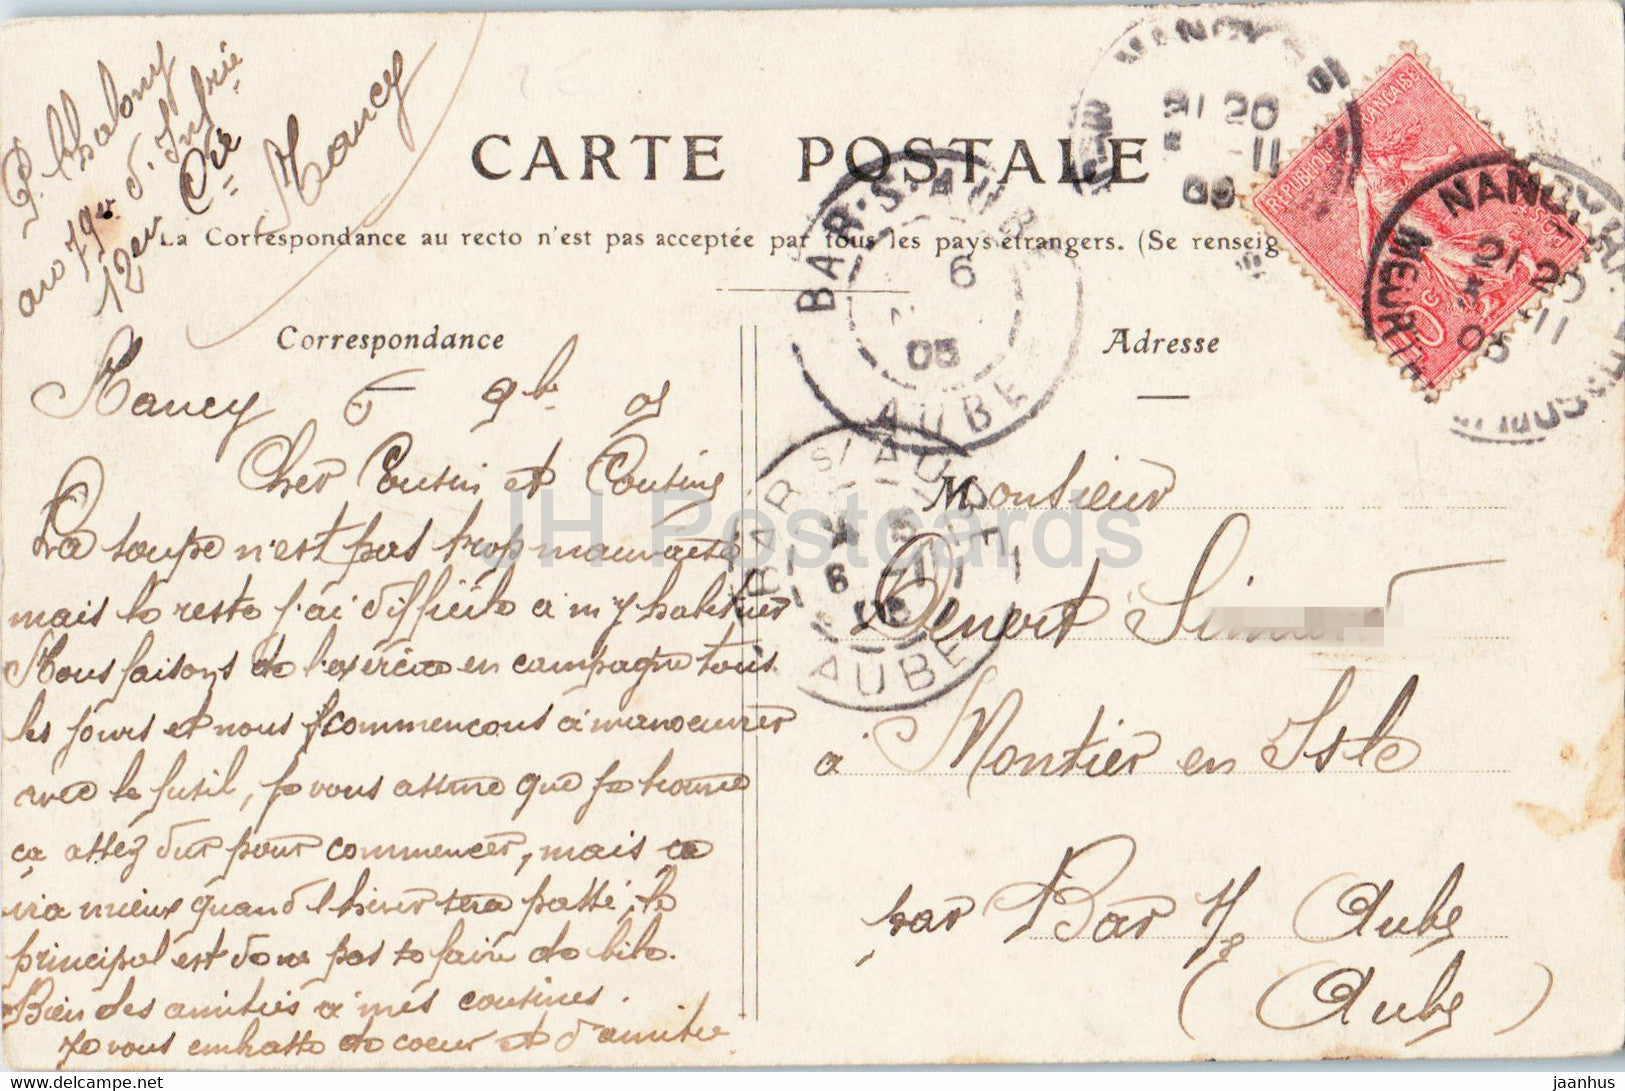 P. Chalony
au 79e d'Infrie
12e Cie
Nancy
CARTE POSTALE
La Correspondance au recto n'est pas acceptée par tous les pays étrangers. (Se renseig
Correspondance
Adresse
Nancy 5 9b 05
Cher Cousin et Cousine
La soupe n'est pas trop mauvaise
mais le reste j'ai difficile a m'y habituer
Nous faisons de l'exercice en campagne tous
les jours et nous commencons a manoeuvrer
avec le fusil, je vous assure que je trouve
ça assez dur pour commencer, mais ça
ira mieux quand l'hiver sera passé, le
principal est donc pas se faire de bile.
Bien des amitiés a mes cousines.
Je vous embrasse de coeur et d'amitié
Monsieur
à Montier en Isle
par Bar s/ Aube
(Aube)
NANCY
21 20
11
05
NANCY
MEURTHE
21 20
11
05
BAR-S-AUBE
6
05
AUBE
BAR S/AUBE
6 11
05
AUBE
REPUBLIQUE FRANÇAISE
10c
POSTES
JH Postcards
www.delcampe.net
jaanhus